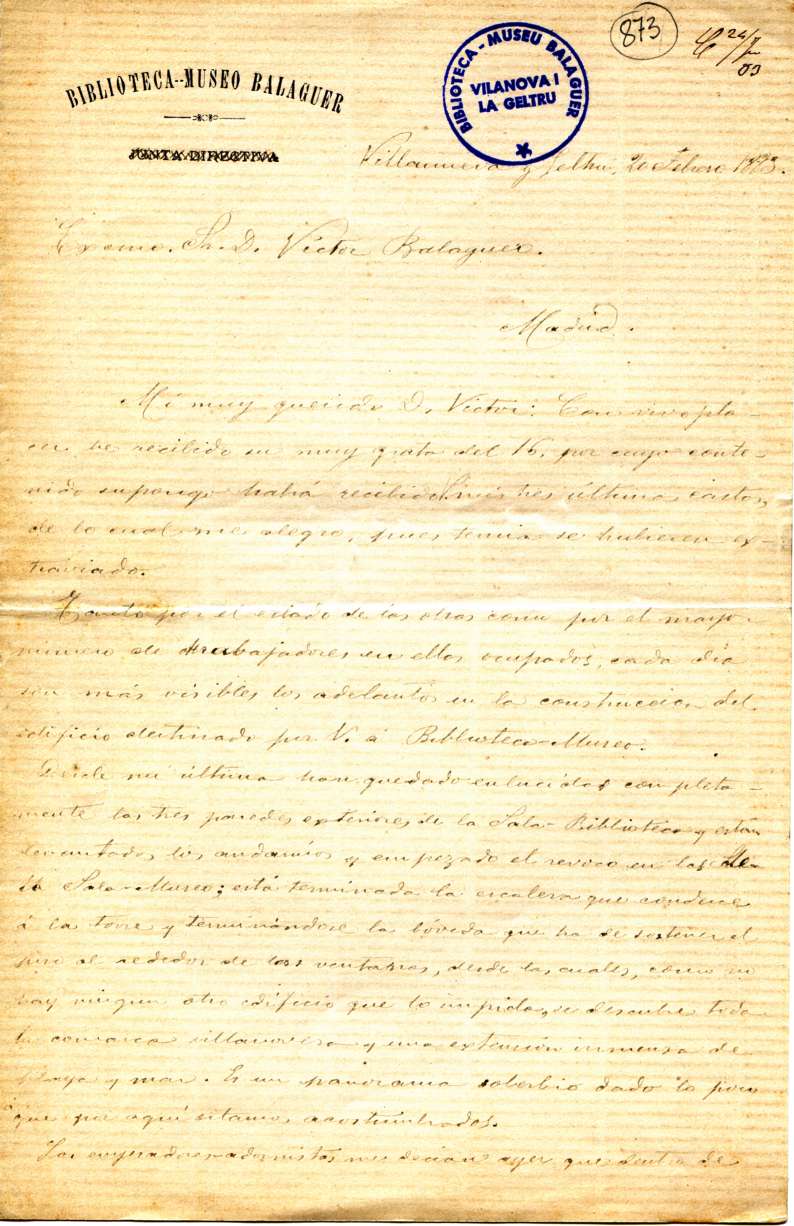 873
BIBLIOTECA--MUSEO BALAGUER
BIBLIOTECA - MUSEU BALAGUER
VILANOVA I
LA GELTRU
JUNTA DIRECTIVA
Villanueva y Geltrú, 20 Febrero 1883.
Excmo. Sr. D. Víctor Balaguer.
Madrid.
Mi muy querido D. Víctor: Con vivo pla-
cer he recibido su muy grata del 16, por cuyo conte-
nido supongo habrá recibido mis tres últimas cartas,
de lo cual me alegro, pues temía se hubiesen ex-
traviado.
Tanto por el estado de las obras como por el mayor
número de trabajadores en ellas ocupados, cada día
son más visibles los adelantos en la construcción del
edificio destinado por V. á Biblioteca-Museo.
Desde mi última han quedado enlucidas completa-
mente las tres paredes exteriores de la Sala-Biblioteca y están
levantados los andamios y empezado el revoco en las de
la Sala-Museo; está terminada la escalera que conduce
á la torre y terminándose la bóveda que ha de sostener el
piso al rededor de las ventanas, desde las cuales, como no
hay ningun otro edificio que lo impida, se descubre toda
la comarca villanovesa y una extensión inmensa de
playa y mar. Es un panorama soberbio dado lo poco
que por aquí estamos acostumbrados.
Los enyesadores-adornistas me decían ayer que dentro de